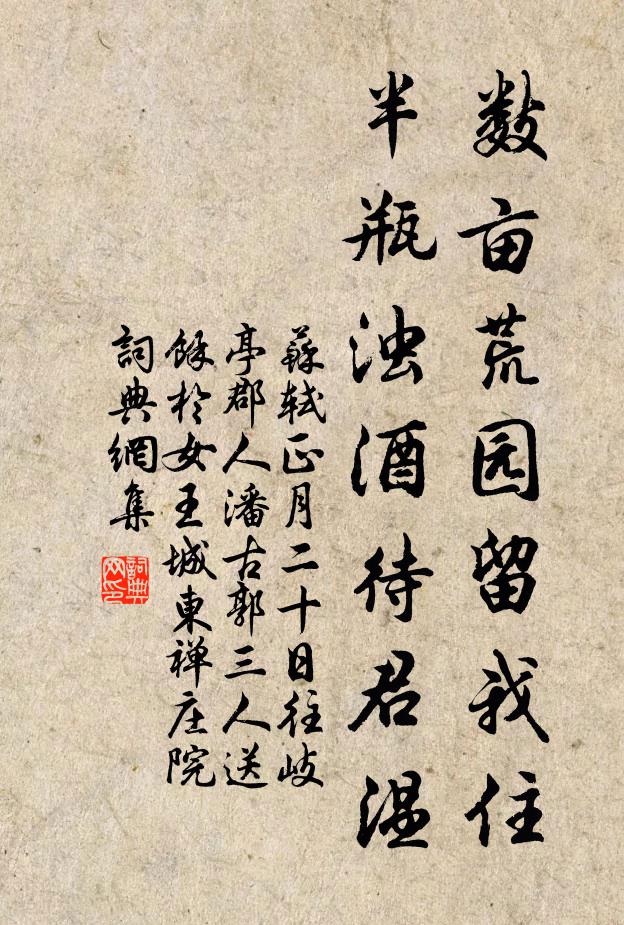 数亩荒园留我住
半瓶浊酒待君温
蘇軾正月二十日往岐
亭郡人潘古郭三人送
餘於女王城東禅庄院
詞典網集
詞典
网印